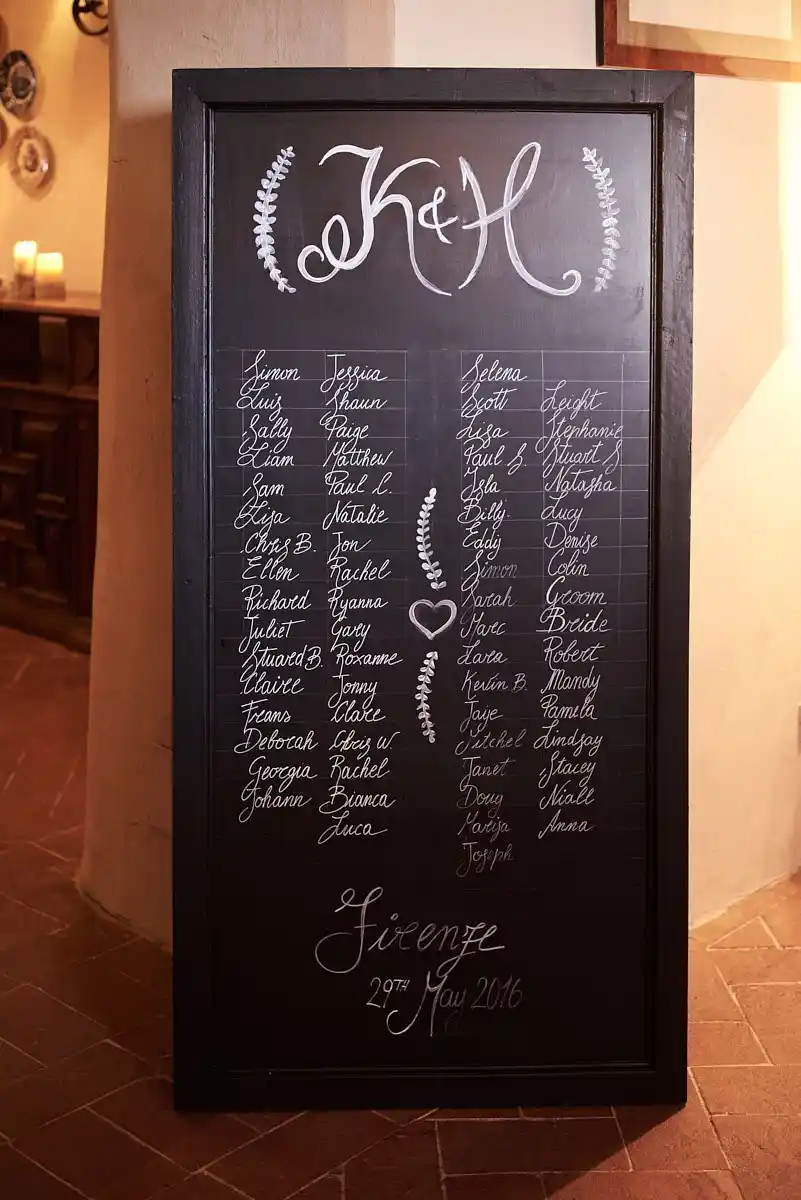 K & H
Simon Jessica
Luis Shaun
Sally Paige
Liam Matthew
Sam Paul C.
Lisa Natalie
Chris B. Jon
Ellen Rachel
Richard Ryanna
Juliet Gary
Stuard B. Roxanne
Claire Jonny
Frans Clare
Deborah Chris W.
Georgia Rachel
Johann Bianca
Luca
Selena
Scott Leight
Lisa Stephanie
Paul S. Stuart S
Isla Natasha
Billy Lucy
Eddy Denise
Simon Colin
Sarah Groom
Marc Bride
Lara Robert
Kevin B. Mandy
Jaye Pamela
Mitchel Lindsay
Janet Stacey
Doug Niall
Marija Anna
Joseph
Firenze
29TH May 2016